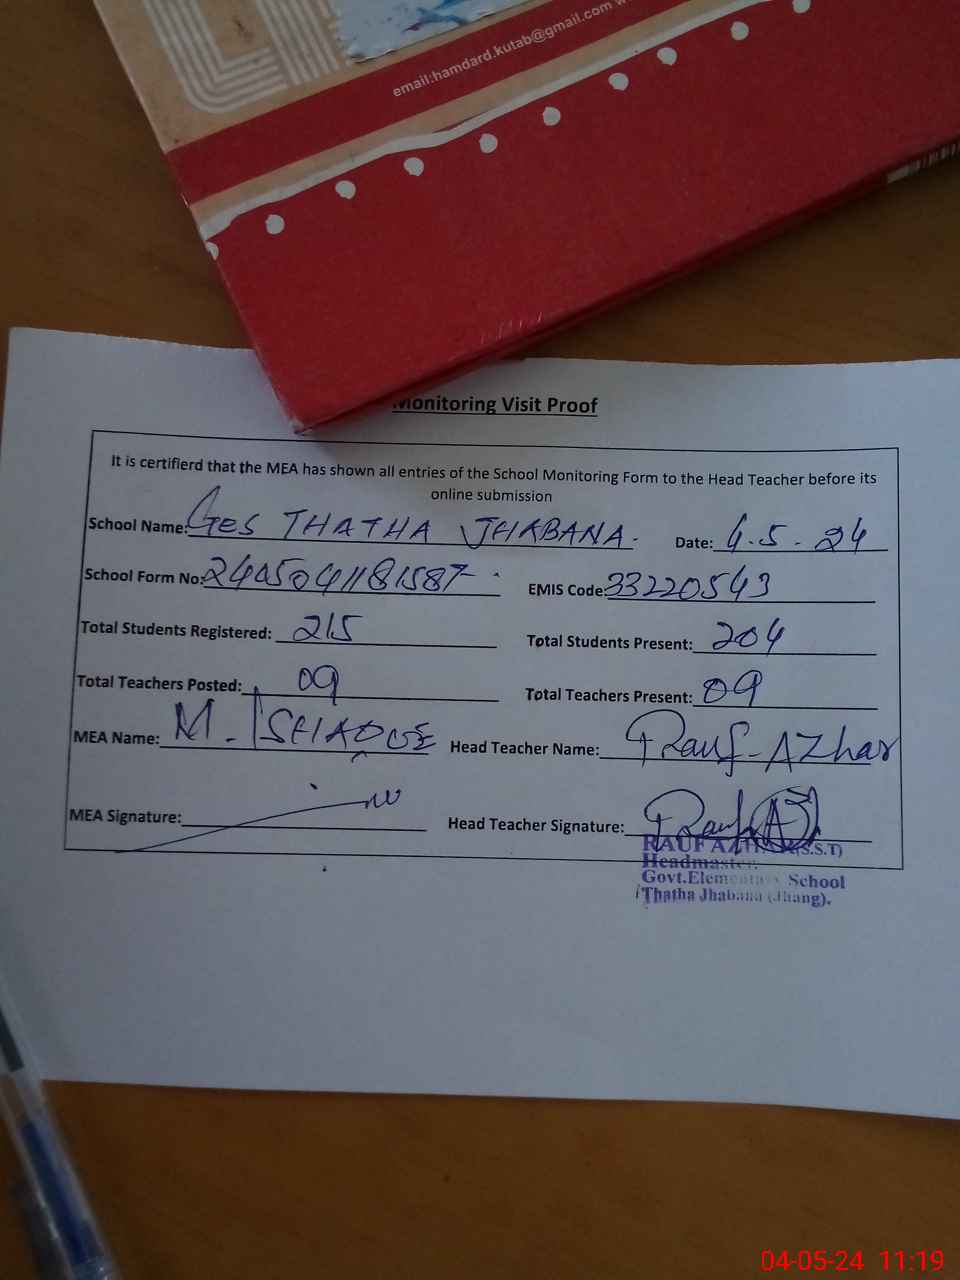 email:hamdard.kutab@gmail.com
Monitoring Visit Proof
It is certifierd that the MEA has shown all entries of the School Monitoring Form to the Head Teacher before its
online submission
School Name: GES THATHA JHABANA. Date: 4.5.24
School Form No: EMIS Code: 33220543
Total Students Registered: 215 Total Students Present: 204
Total Teachers Posted: 09 Total Teachers Present: 09
MEA Name: M. ISHAQUE Head Teacher Name: Rauf-Azhar
MEA Signature: Head Teacher Signature:
RAUF AZHAR (S.S.T)
Headmaster.
Govt.Elementary School
Thatha Jhabana (Jhang).
04-05-24 11:19